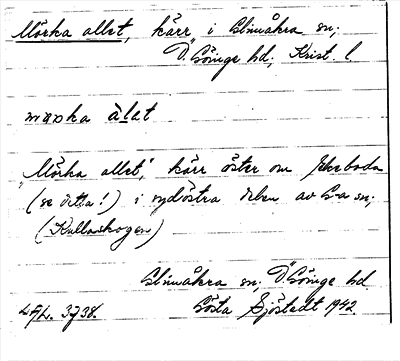 Mörka allet, kärr i Glimåkra sn;
Ö. Göinge hd; Krist. l.
mɶrka àlət
"Mörka allet", kärr öster om
(se detta!) i sydöstra delen av G-a sn;
(Kullaskogen)
Glimåkra sn. Ö Göinge hd.
3738. Gösta Sjöstedt 1942.